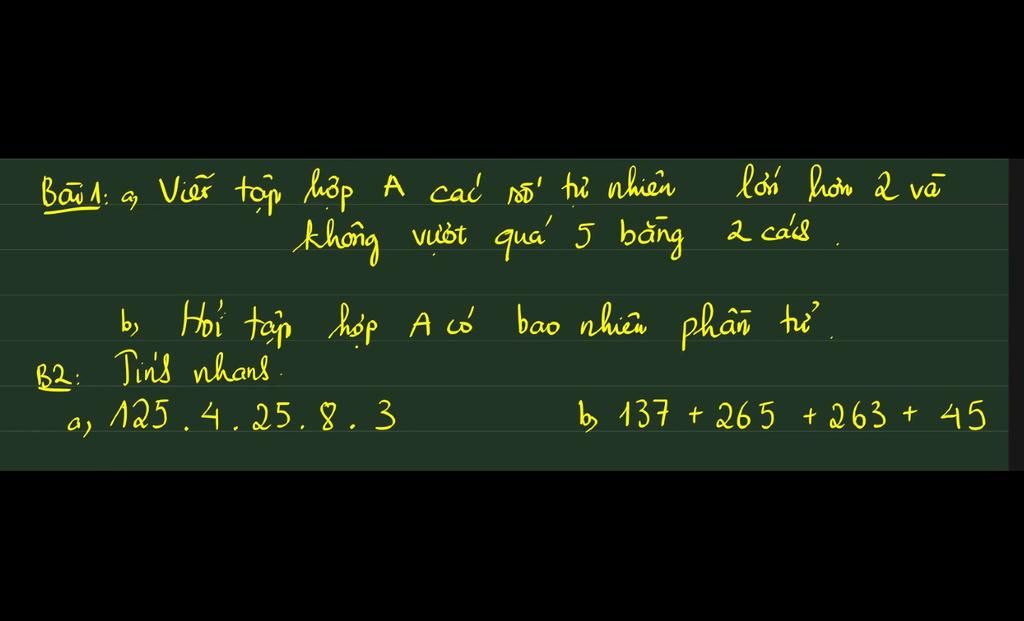 Bài 1: a, Viết tập hợp A các số tự nhiên lớn hơn 2 và
không vượt quá 5 bằng 2 cách.
b, Hỏi tập hợp A có bao nhiêu phần tử.
B2: Tính nhanh.
a, 125 . 4 . 25 . 8 . 3 b, 137 + 265 + 263 + 45